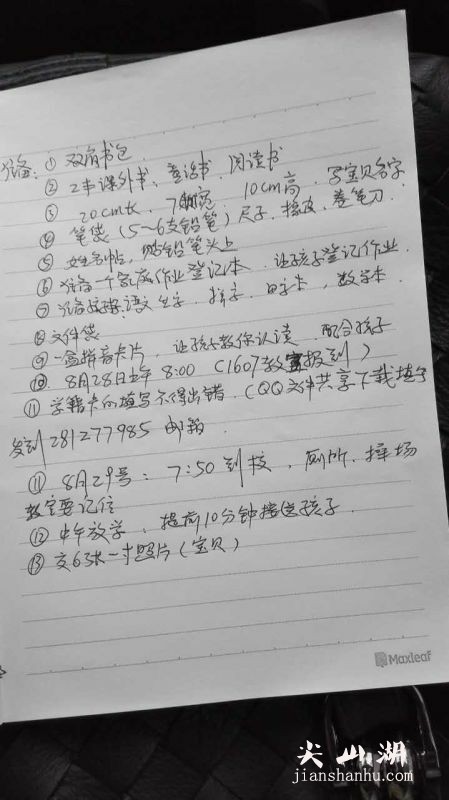 准备: ① 双肩书包
② 2本课外书、童话书、阅读书
③ 20cm长, 7cm宽, 10cm高, 写宝贝名字
④ 笔袋 (5~6支铅笔) 尺子, 橡皮, 卷笔刀.
⑤ 姓名帖, 贴铅笔头上
⑥ 准备一个家庭作业登记本, 让孩子登记作业.
⑦ 准备 语文 生字, 拼字, 田字本, 数学本.
⑧ 文件袋
⑨ 一盒拼音卡片, 让孩子教你认读, 配合孩子
⑩ 8月28日上午 8:00 (1607教室报到)
⑪ 学籍卡的填写不得出错. (QQ文件共享下载填写
发到 281277985 邮箱.
⑪ 8月29号: 7:50 到校, 厕所、操场
教室要记住
⑫ 中午放学, 提前10分钟接送孩子.
⑬ 交6张一寸照片 (宝贝)
Maxleaf
尖山湖
jianshanhu.com